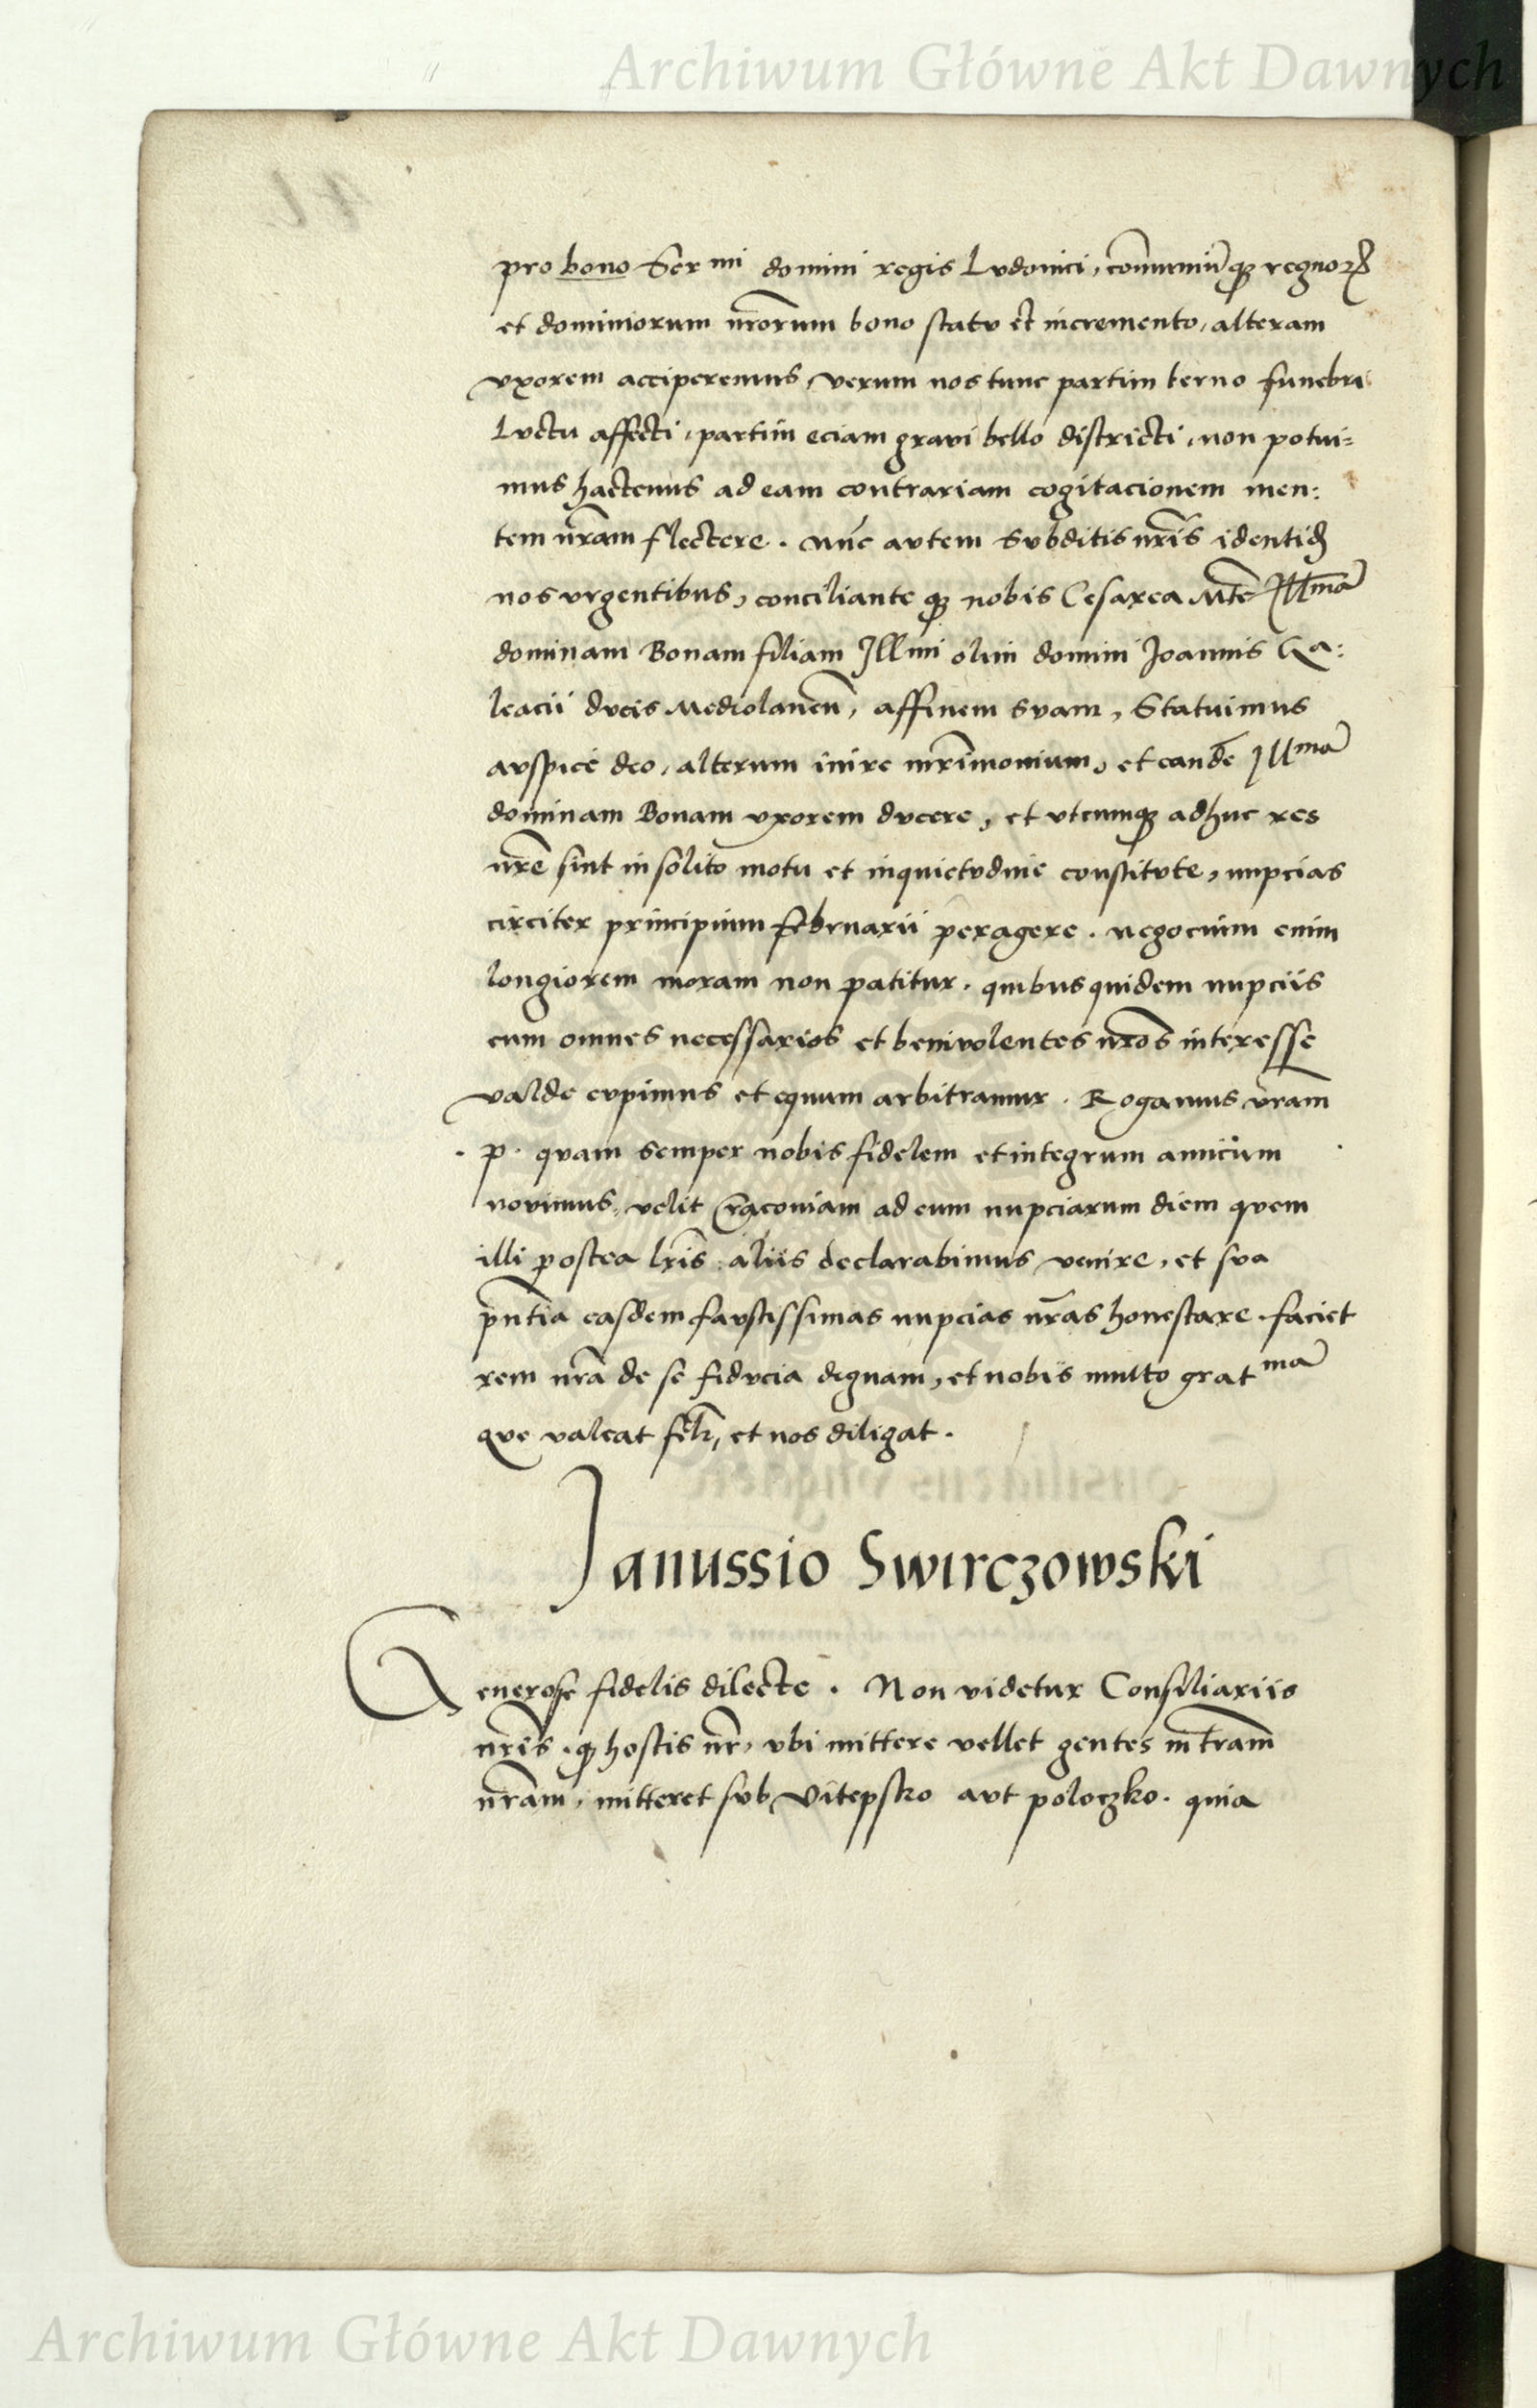 Archiwum Główne Akt Dawnych
pro bono Ser mi domini regis Lvdovici, com̄uniūq3 regnoꝝ
et dominiorum nr̄orum bono statv et incremento, alteram
vxorem acciperemus, verum nos tunc partim terno funebri
Lvctu affecti, partim eciam gravi bello districti, non potui=
mus hactenus ad eam contrariam cogitacionem men:
tem nr̄am flectere. Nūc avtem Svbditis nr̄is identiđ
nos vrgentibus, conciliante q3 nobis Cesarea Mt̄e Jllmā
dominam Bonam filiam Jllmi olim domini Joannis Ga:
leacii dvcis Mediolanen̄, affinem svam, Statuimus
avspice deo, alterum inire mr̄imonium, et eandē Jllmā
dominam Bonam vxorem dvcere, et vtcumq3 adhuc res
nr̄e sint insolito motu et inquietvdine constitvte, nupcias
circiter principium februarii peragere. negocium enim
longiorem moram non patitur. quibus quidem nupciis
cum omnes necessarios et benivolentes nr̄os interesse
valde cvpimus et equum arbitramur. Rogamus vr̄am
. p. qvam semper nobis fidelem et integrum amicum
novimus, velit Cracoviam ad eum nupciarum diem qvem
illi postea lr̄is aliis declarabimus venire, et sva
pn̄tia easdem favstissimas nupcias nr̄as honestare. faciet
rem nr̄a de se fidvcia dignam, et nobis multo grat mā
qve valeat fel̄r, et nos diligat.
Janussio Swirczowski
Generose fidelis dilecte. Non videtur Consiliariis
nr̄is. q3 hostis nr̄, vbi mittere vellet gentes in tr̄am
nr̄am, mitteret svb Vitepsko avt poloczko. quia
Archiwum Główne Akt Dawnych